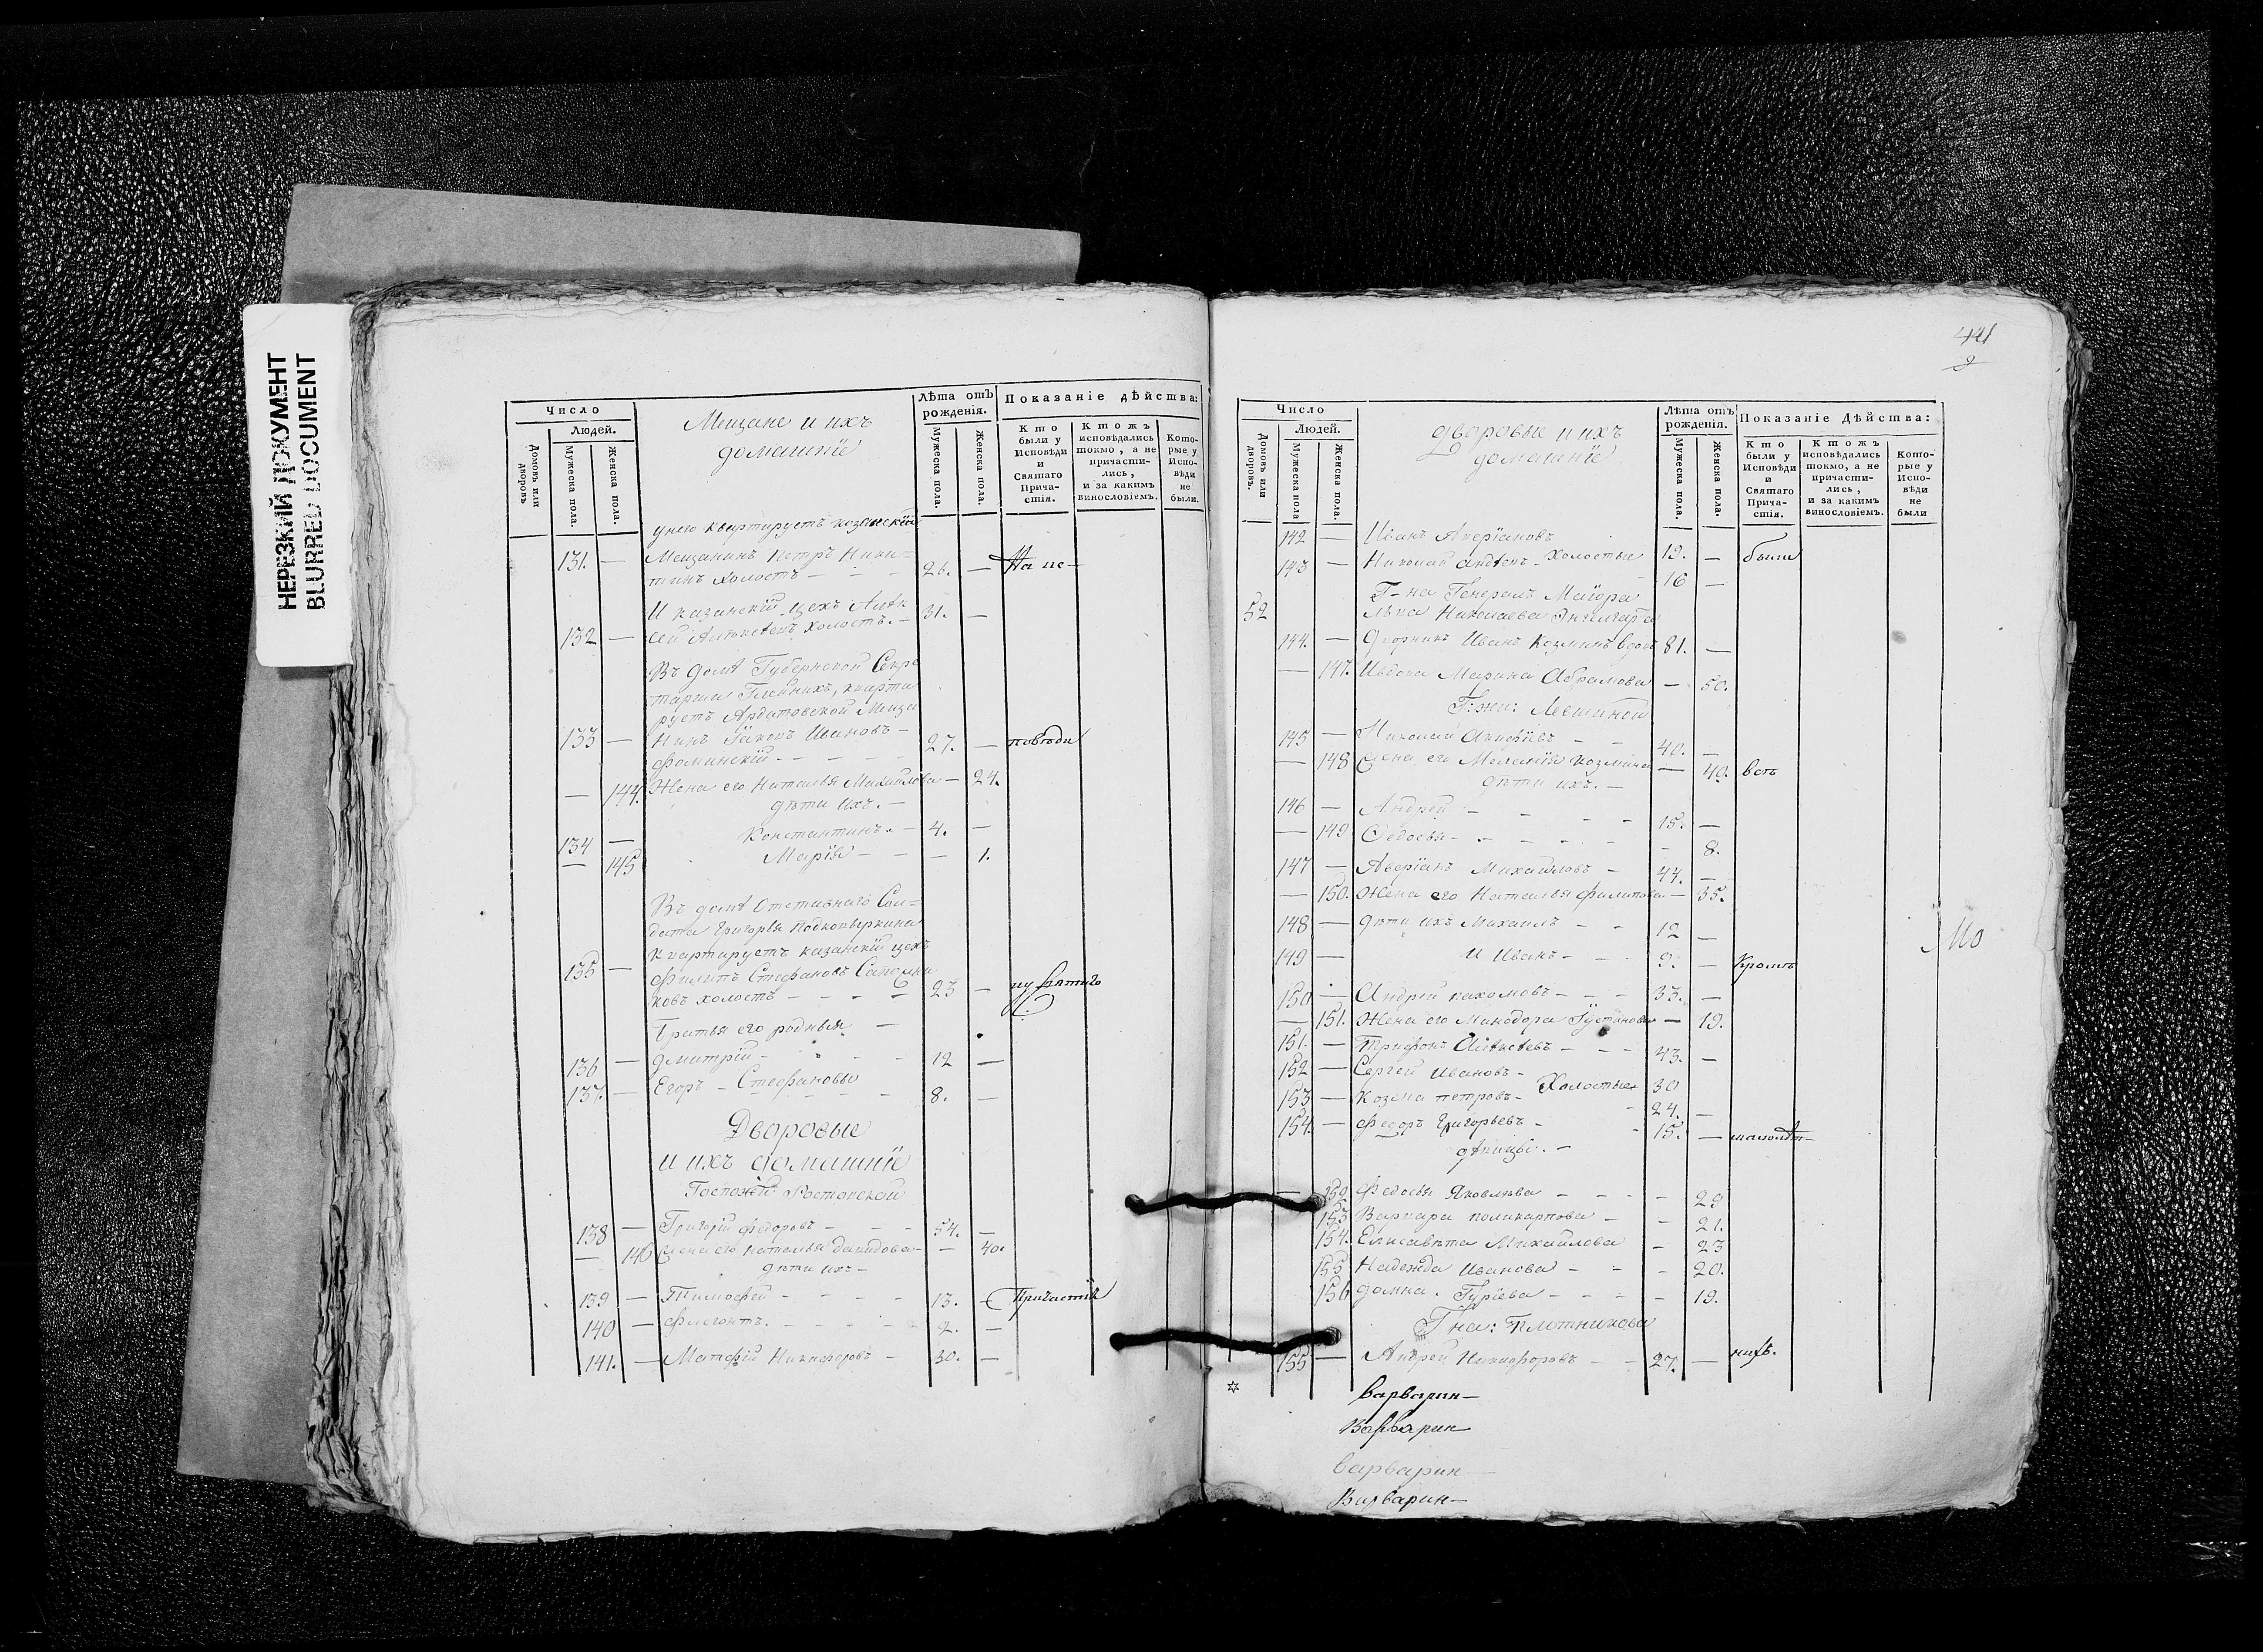 НЕРЕЗКИЙ ДОКУМЕНТ
BLURRED DOCUMENT
Число
Людей.
Домовъ или дворовъ
Мужеска пола.
Женска пола.
Мещане и ихъ
домашніе
Лѣта отъ рожденія.
Мужеска пола.
Женска пола.
Показаніе дѣйства:
Кто были у Исповѣди и Святаго Прича-стія.
Ктожъ исповѣдались токмо, а не причасти-лись, и за какимъ винословіемъ.
Кото-рые у Испо-вѣди не были.
унего квартируетъ козанскій
131. — Мещанинъ Петръ Ники=
тинъ холостъ — — — 26. — На ис—
И казанскій цехъ Алѣк 31. —
132 — сѣй Алѣксѣевъ холостъ. —
Въ домѣ Губернской Секре
тарши, кварти
руетъ Ардатовской Меща
133 — нинъ Іаковъ Ивановъ — 27. — повѣди
Фоминскій. — — — —
— 144. Жена его Наталья Михайлова — 24.
дѣти ихъ. —
134 — Константинъ. — 4. —
— 145 Марія — — — 1.
Въ домѣ Отставнаго Сол=
дата Григорья
квартируетъ казанскій цехъ
135 — Филипъ Стефановъ Сапожни
ковъ холостъ — — — — 23 — и святаго
Братья его родныя —
136 — Дмитрій — — — — 12 —
137. — Егоръ — Стефановы — — — 8. —
Дворовые
и ихъ домашніе
Госпожи
138 — Григорій Федоровъ — — — 54. —
— 146 Жена его Наталья Давидова — — 40.
дѣти ихъ —
139 — Тимофей — — — — 13. — Причастія
140 — Флегонтъ. — — — — 2. —
141. — Матфій Никифоровъ — 30. —
441
2
Число
Людей.
Домовъ или дворовъ.
Мужеска пола
Женска пола.
дворовые и ихъ
домашніе
Лѣта отъ рожденія.
Мужеска пола.
Женска пола.
Показаніе Дѣйства:
Кто были у Исповѣди и Святаго Прича-стія.
Ктожъ исповѣдались токмо, а не причасти-лись, и за какимъ винословіемъ.
Кото-рые у Испо-вѣди не были
142 — Иванъ Аверіановъ
143 — Николай — Холостые 19. — были
16 —
Г-на Генералъ Маіора
52 Льва Николаева Энгелгарта
144. — Дворникъ Иванъ Козминъ вдовъ 81. —
— 147. Ивдова Марина Абрамова — 50.
Г:жи:
145 — Николай — — 40. —
— 148 Жена его Козмина — 40. всѣ
дѣти ихъ. —
146 — Андрей — — — — 15. —
— 149 Федосья — — — — — — 8.
147 — Аверіанъ Михайловъ — 44. —
— 150. Жена его Наталья Филипова — 35.
148 — дѣти ихъ Михаилъ — — 12 —
149 — и Иванъ — — — 9. — Кромѣ
150 — Андрей Пахомовъ — — — 33. —
— 151. Жена его Минодора — 19.
151. — Трифонъ Алѣксѣевъ — — — 43. —
152 — Сергей Ивановъ —
153 — Козма Петровъ — Холостые 30
24. —
154. — Федоръ Григорьевъ — — 15. — малолѣт—
дѣвицы. —
— 152 Федосья Яковлева — — — — 29
153 Варвара Поликарпова — — 21.
154. Елисавѣта Михайлова — 23
155 Надежда Иванова — — — 20.
156 Домна. Гуріева — — — — 19.
Гна: Плотникова
155 — Андрей Никифоровъ — — 27. — нихъ.
варварин—
Варварин
варварин—
Варварин—